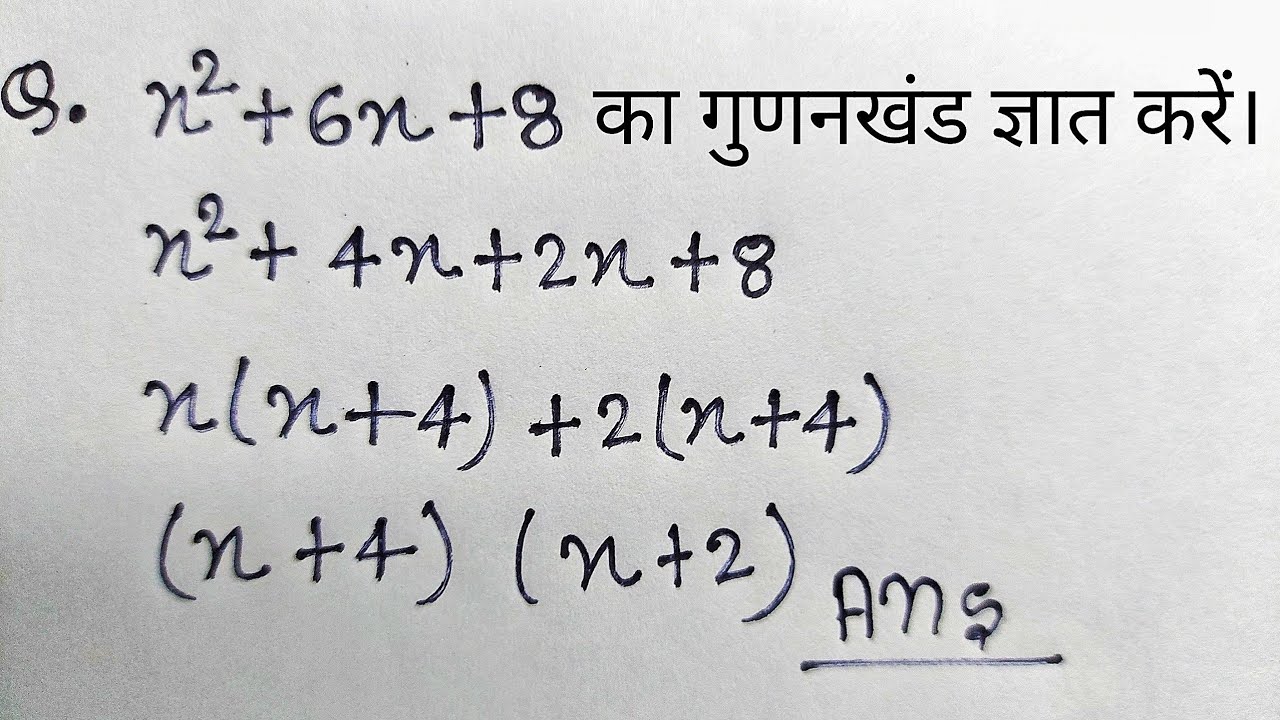 Q. x²+6x+8 का गुणनखंड ज्ञात करें।
x²+4x+2x+8
x(x+4)+2(x+4)
(x+4) (x+2) Ans